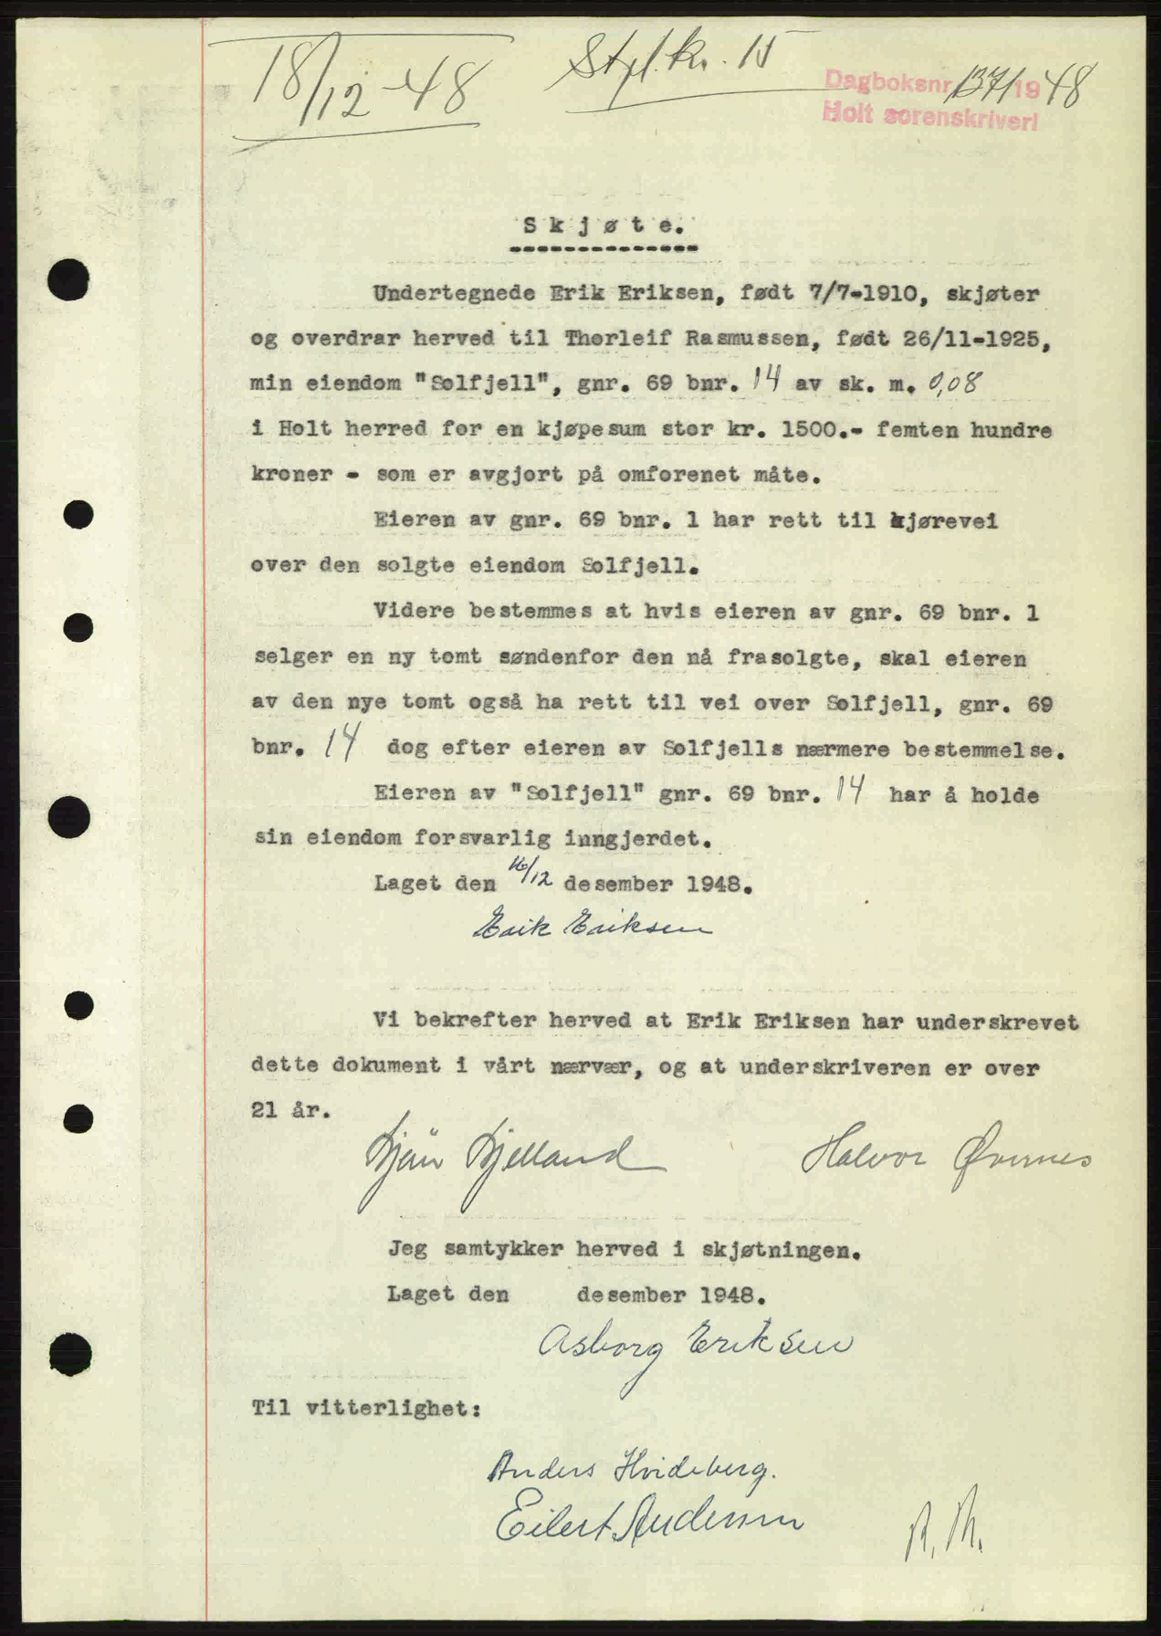 18/12-48
Stpl. kr. 15
Dagboksnr. 1371 1948
Holt sorenskriveri
Skjøte.
Undertegnede Erik Eriksen, født 7/7-1910, skjøter
og overdrar herved til Thorleif Rasmussen, født 26/11-1925,
min eiendom "Solfjell", gnr. 69 bnr. 14 av sk. m. 0,08
i Holt herred for en kjøpesum stor kr. 1500.- femten hundre
kroner - som er avgjort på omforenet måte.
Eieren av gnr. 69 bnr. 1 har rett til kjørevei
over den solgte eiendom Solfjell.
Videre bestemmes at hvis eieren av gnr. 69 bnr. 1
selger en ny tomt søndenfor den nå frasolgte, skal eieren
av den nye tomt også ha rett til vei over Solfjell, gnr. 69
bnr. 14 dog efter eieren av Solfjells nærmere bestemmelse.
Eieren av "Solfjell" gnr. 69 bnr. 14 har å holde
sin eiendom forsvarlig inngjerdet.
Laget den 16/12 desember 1948.
Erik Eriksen
Vi bekrefter herved at Erik Eriksen har underskrevet
dette dokument i vårt nærvær, og at underskriveren er over
21 år.
Halvor
Jeg samtykker herved i skjøtningen.
Laget den desember 1948.
Asborg Eriksen
Til vitterlighet:
Anders Hvideberg.
Eilert Andersen